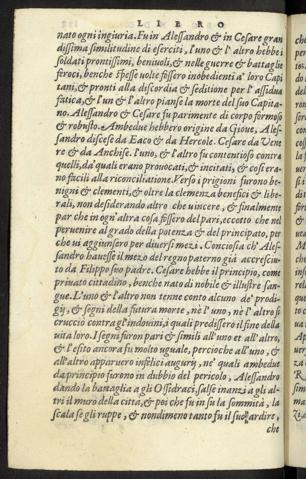 LIBRO
nato ogni ingiuria. Fu in Alessandro & in Cesare gran
dissima similitudine di eserciti, l'uno & l'altro hebbe i
soldati prontissimi, beniuoli, & nelle guerre & battaglie
feroci, benche spesse uolte fossero inobedienti a' loro Capi
tani, & pronti alla discordia & seditione per l'assidua
fatica, & l'un & l'altro pianse la morte del suo Capita-
no. Alessandro & Cesare fu parimente di corpo formoso
& robusto. Ambedue hebbero origine da Gioue, Ales-
sandro discese da Eaco & da Hercole. Cesare da Vene
re & da Anchise. l'uno, & l'altro fu contentioso contra
quelli, da' quali erano prouocati, & incitati, & cosi era-
no facili alla riconciliatione. Verso i prigioni furono be-
nigni & clementi, & oltre la clemenza benefici & libe-
rali, non desiderando altro che uincere, & finalmente
par che in ogn'altra cosa fossero del pari, eccetto che nel
peruenire al grado della potenza & del principato, per
che ui aggiunsero per diuersi mezi. Conciosia ch'Ales-
sandro hauesse il mezo del regno paterno già accresciu-
to da Filippo suo padre. Cesare hebbe il principio, come
priuato cittadino, benche nato di nobile & illustre san-
gue. L'uno & l'altro non tenne conto alcuno de' prodi-
gij, & segni della futura morte, nè l'uno, nè l'altro si
crucciò contra gl'indouini, a quali predissero il fine della
uita loro. I segni furon pari & simili all'uno et all'altro,
& l'esito ancora fu molto uguale, percioche all'uno, &
all'altro apparuero infelici augurij, ne' quali ambedue
da principio furono in dubbio del pericolo, Alessandro
dando la battaglia a gli Ossidraci, salse inanzi a gli al-
tri il muro della città, & poi che fu in su la sommità, la
scala se gli ruppe, & nondimeno tanto fu il suo ardire,
che